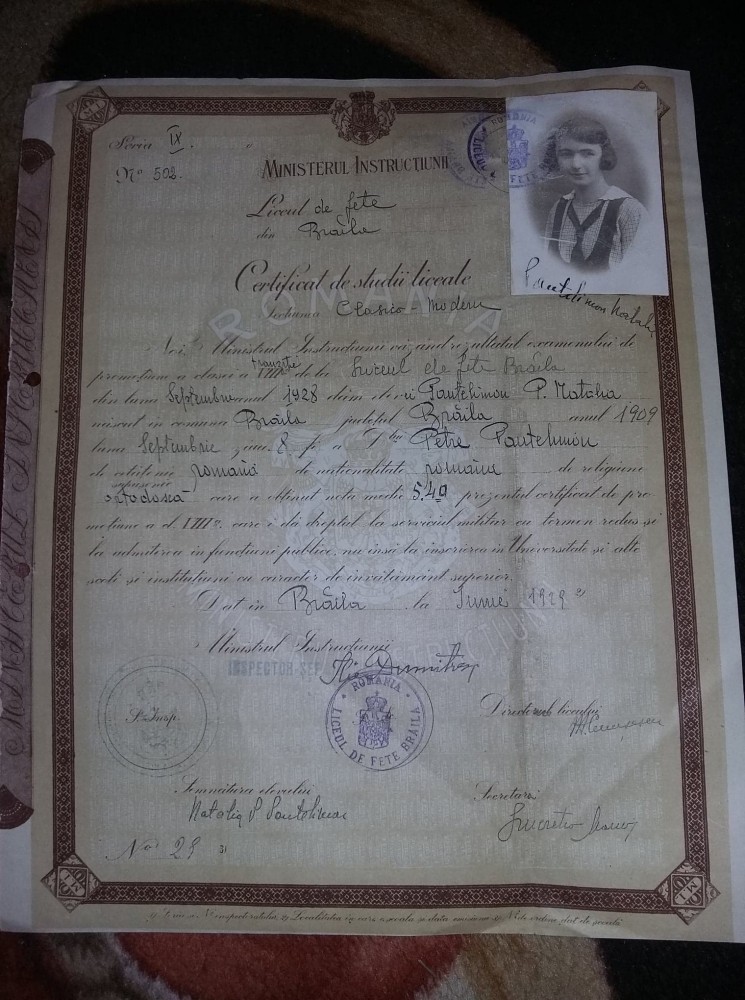 Seria IX.
No 502.
MINISTERUL INSTRUCȚIUNII
Liceul de fete
din Brăila
Certificat de studii liceale
Secțiunea Clasico-Modern
Pantelimon Natalia
ROMANIA
Noi, Ministrul Instrucțiunii văzând rezultatul examenului de
promoțiune a clasei a VIIIa de la Liceul de fete Brăila
din luna Septembrie anul 1928 elevii Pantelimon P. Natalia
născut în comuna Brăila județul Brăila anul 1909
luna Septembrie ziua 8 a Petre Pantelimon
de cetățenie română de naționalitate română de religiune
ortodoxă care a obținut nota medie 5.49 prezentul certificat de pro-
moțiune a cl. VIII a. care-i dă dreptul la serviciul militar cu termen redus și
la admiterea în funcțiuni publice, nu însă la înscrierea în Universitate și alte
școli și instituțiuni cu caracter de învățământ superior.
Dat în Brăila la Iunie 1929 2)
Ministrul Instrucțiunii
INSPECTOR
ROMANIA
LICEUL DE FETE BRĂILA
Directorul liceului
Semnătura elevului
Natalia P Pantelimon
Secretar
No 29 3)